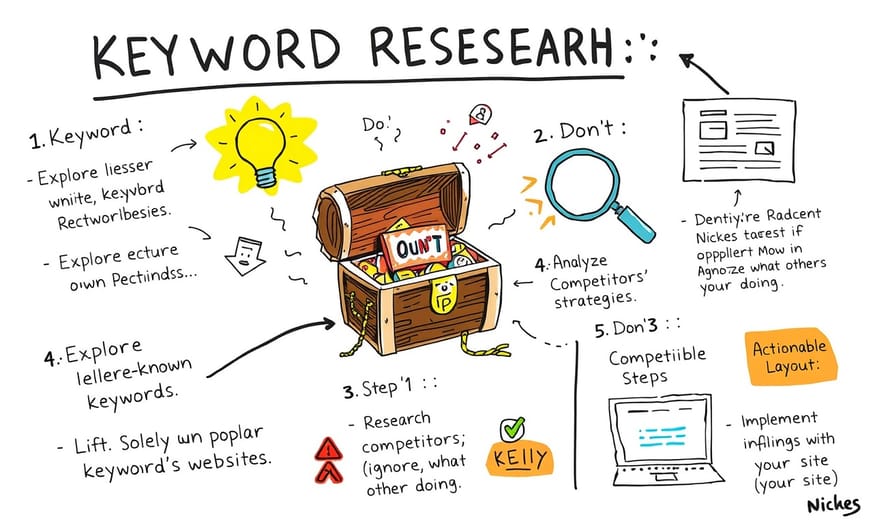 KEYWORD RESESEARH:∵
1. Keyword:
- Explore liesser
wniite, keyvbrd
Rectworlbesies.
- Explore ecture
oıwn Pectiindss...
Do.'
OUN'T
2. Don't:
- Dentiy:re Radcent
Nickes tarest if
opppliert Mow in
Agnoze what others
your doing.
4. Analyze
Competitors'
strategies.
4. Explore
lellere-known
keywords.
- Lift. Solely un poplar
keywoıd's websites.
3. Step '1 ::
- Research
competitors;
(ignore, what
other doing.
KElly
5. Don'3 ::
Competiible
Steps
Actionable
Layout:
- Implement
infilings with
your site
(your site)
Niches